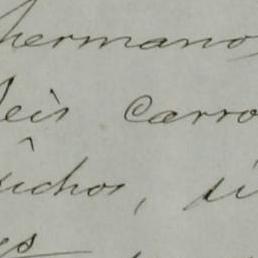 hermano
leis carro
bichos, si
es